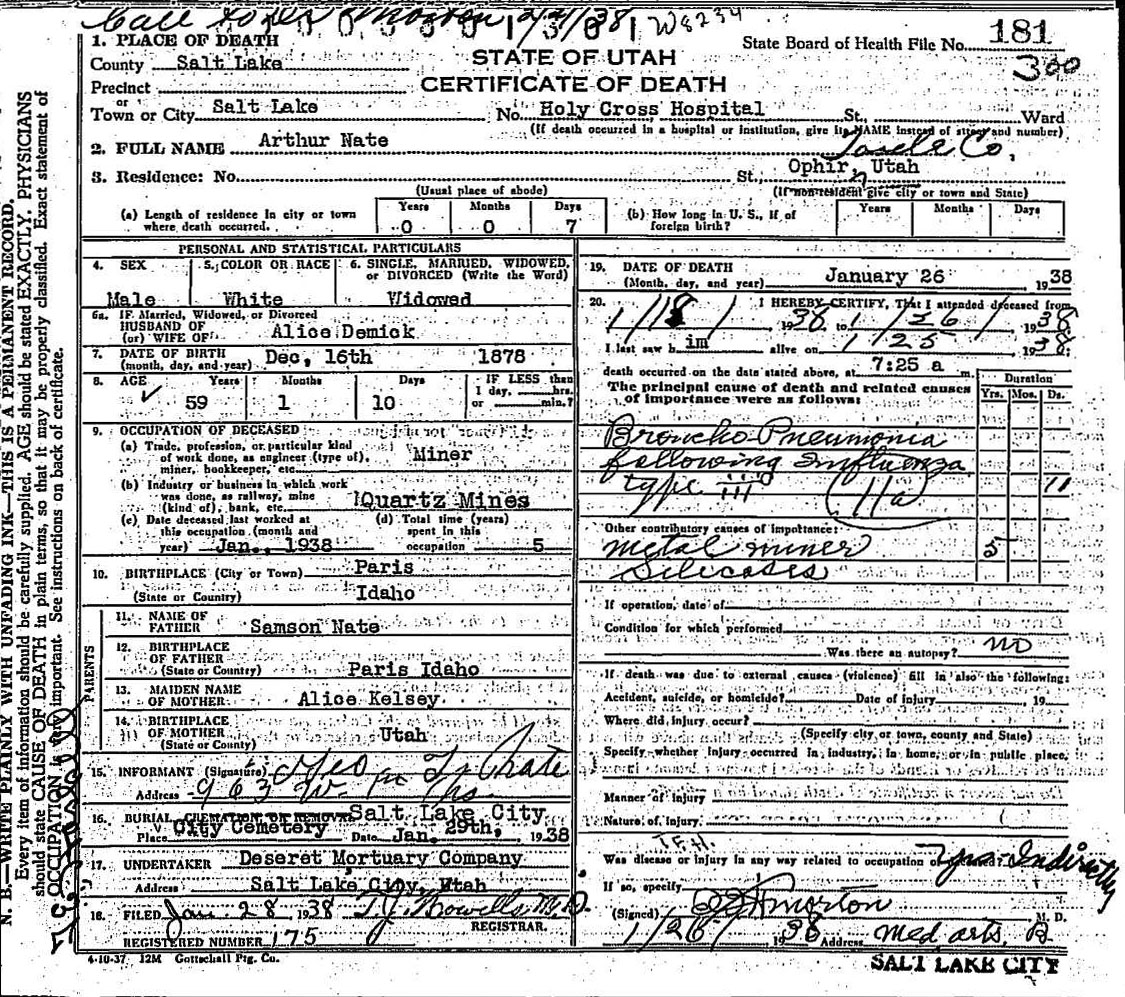 Call to 1/31/38 W8234
1. PLACE OF DEATH
State Board of Health File No. 181
County Salt Lake
STATE OF UTAH
300
Precinct
CERTIFICATE OF DEATH
or
Town or City Salt Lake No. Holy Cross Hospital St., Ward
(If death occurred in a hospital or institution, give its NAME instead of street and number)
2. FULL NAME Arthur Nate
Tooele Co,
3. Residence: No. St., Ophir, Utah
(Usual place of abode) (If non-resident give city or town and State)
(a) Length of residence in city or town where death occurred. Years 0 Months 0 Days 7
(b) How long in U. S., if of foreign birth? Years Months Days
PERSONAL AND STATISTICAL PARTICULARS
4. SEX Male
5. COLOR OR RACE White
6. SINGLE, MARRIED, WIDOWED, or DIVORCED (Write the Word) Widowed
6a. IF Married, Widowed, or Divorced
HUSBAND OF
(or) WIFE OF Alice Demick
7. DATE OF BIRTH
(month, day, and year) Dec, 16th 1878
8. AGE Years 59 Months 1 Days 10 IF LESS than 1 day, hrs. or min.?
9. OCCUPATION OF DECEASED
(a) Trade, profession, or particular kind of work done, as engineer (type of), miner, bookkeeper, etc. Miner
(b) Industry or business in which work was done, as railway, mine (kind of), bank, etc. Quartz Mines
(c) Date deceased last worked at this occupation (month and year) Jan., 1938
(d) Total time (years) spent in this occupation 5
10. BIRTHPLACE (City or Town) Paris
(State or Country) Idaho
PARENTS
11. NAME OF FATHER Samson Nate
12. BIRTHPLACE OF FATHER (State or Country) Paris Idaho
13. MAIDEN NAME OF MOTHER Alice Kelsey
14. BIRTHPLACE OF MOTHER (State or County) Utah
15. INFORMANT (Signature) Nate
Address 963 W
16. BURIAL, CREMATION OR REMOVAL Salt Lake City
Place City Cemetery Date Jan. 29th, 1938
17. UNDERTAKER Deseret Mortuary Company
Address Salt Lake City, Utah
18. FILED Jan. 28 1938 T. J. Howells M.D.
REGISTRAR.
REGISTERED NUMBER 175
19. DATE OF DEATH
(Month, day, and year) January 26 1938
20. I HEREBY CERTIFY, That I attended deceased from
1/18/ 1938 to 1/26/ 1938
I last saw him alive on 1/25 1938
death occurred on the date stated above, at 7:25 a m.
The principal cause of death and related causes of importance were as follows:
Duration
Yrs. Mos. Ds.
Broncho-Pneumonia
following Influenza
type iii 11a 11
Other contributory causes of importance:
metal miner 5
Silicosis
If operation, date of
Condition for which performed
Was there an autopsy? NO
If death was due to external causes (violence) fill in also the following:
Accident, suicide, or homicide? Date of injury 19
Where did injury occur?
(Specify city or town, county and State)
Specify whether injury occurred in industry, in home, or in public place.
Manner of injury
Nature of injury
Was disease or injury in any way related to occupation of Yes-Indirectly
If so, specify
(Signed) Morton M. D.
1/26 1938 Address Med. Arts. B
SALT LAKE CITY
4-10-37 12M Gottschall Ptg. Co.
N. B.—WRITE PLAINLY WITH UNFADING INK—THIS IS A PERMANENT RECORD.
Every item of information should be carefully supplied. AGE should be stated EXACTLY. PHYSICIANS
should state CAUSE OF DEATH in plain terms, so that it may be properly classified. Exact statement of
OCCUPATION is very important. See instructions on back of certificate.